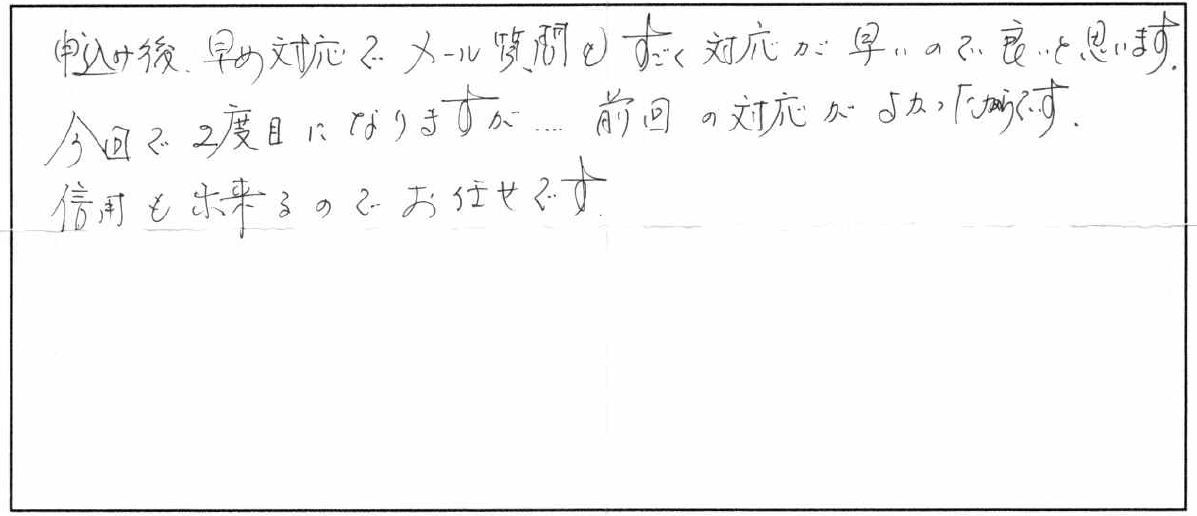 申込み後、早め対応で メール質問も すごく 対応が 早いので 良いと思います。
今回で 2度目に なりますが.... 前回の対応が よかったからです。
信用も出来るので お任せです。